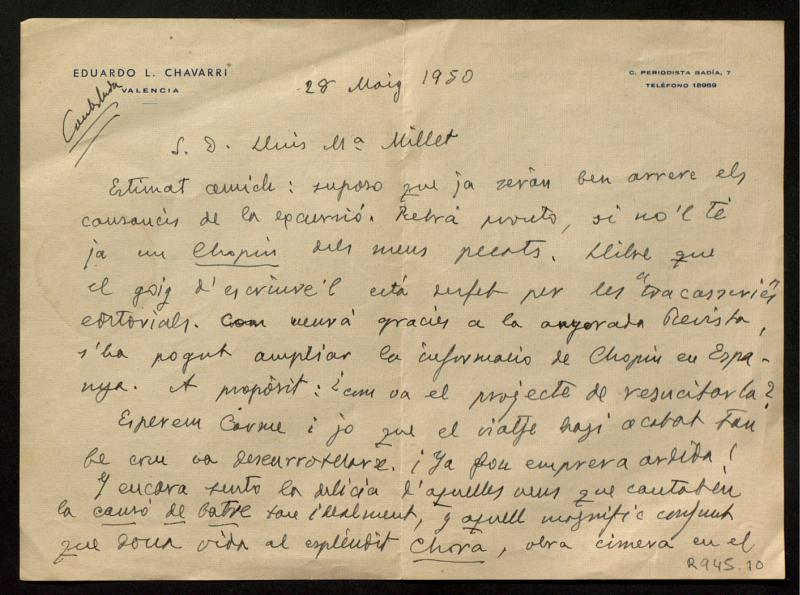 EDUARDO L. CHAVARRI
VALENCIA
C. PERIODISTA BADÍA, 7
TELÉFONO 18969
28 Maig 1950
S. D. Lluis Mª Millet
Estimat amich: suposo que ja serán ben arrere els
cansancis de la excursió. Rebrá pronto, si no'l té
ja un Chopin dels meus pecats. Llibre que
el goig d'escriure'l está desfet per les "tracasseries"
editorials. Com veurá gracies a la anyorada Revista,
s'ha pogut ampliar la informacio de Chopin en Espa-
nya. A propòsit: ¿com va el projecte de resucitarla?
Esperem Carme i jo que el viatje hagi acabat tan
be com va desenrotllarse. ¡Ya fou empresa ardida!
Y encara sento la delicia d'aquelles veus que cantaben
la cançó de batre tan idealment, y aquell magnífic conjunt
que dona vida al esplèndit Chorá, obra cimera en el
R945.10